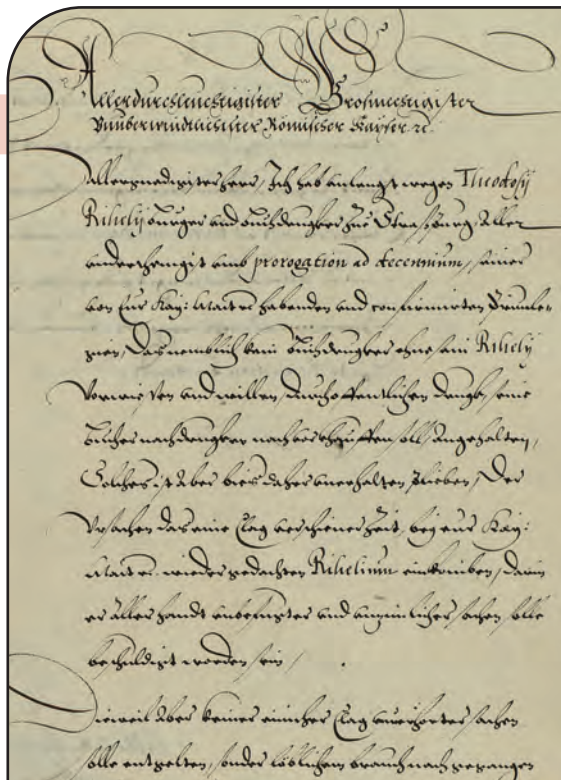 Allerdurchleuchtigister Grosmechtigister
Vnuberwindtlichister Römischer Kayser ꝛc.
Allergnedigister herr, Ich hab anlangst wegen Theodosij
Rihelij burger vnd buchdrugkher zue Straßburg, Aller
underthenigist umb prorogation ad decennium, seines
von Eur Kay: Maitt: habenden vnd confirmirten Priuile-
gien, Das nemblich kain buchdrugkher ohne sein Rihely
Vorwissen vnd willen, durch offentlichen drugkh, seine
bücher nachdrugkhen noch verkhauffen soll, Angehalten,
Solches ist Aber bies daher vnerhalten plieben, Der
Vrsachen das eine Clag verschiener Zeit, bey eur Kay:
Maitt: wieder gedachten Rihelium einkomben, darin
er allerhandt unbefuegter vnd unzimlicher sachen solle
beschuldigt worden sein,
Dieweil Aber keiner einicher Clag unerhorter sachen
solle entgelten, sonder löblichem brauch nach gegangen